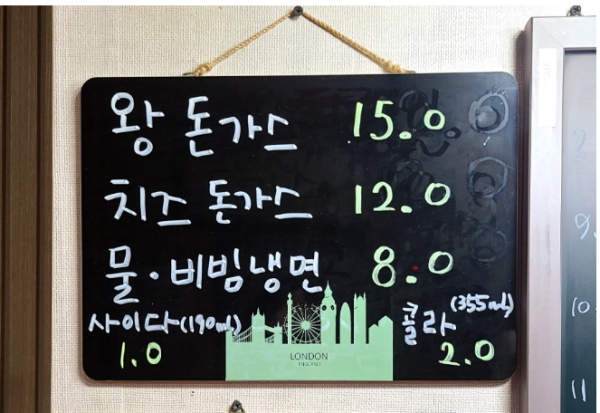 왕 돈가스 15.0
치즈 돈가스 12.0
물·비빔냉면 8.0
사이다(190ml) 1.0
콜라(355ml) 2.0
LONDON
9.
10.
11